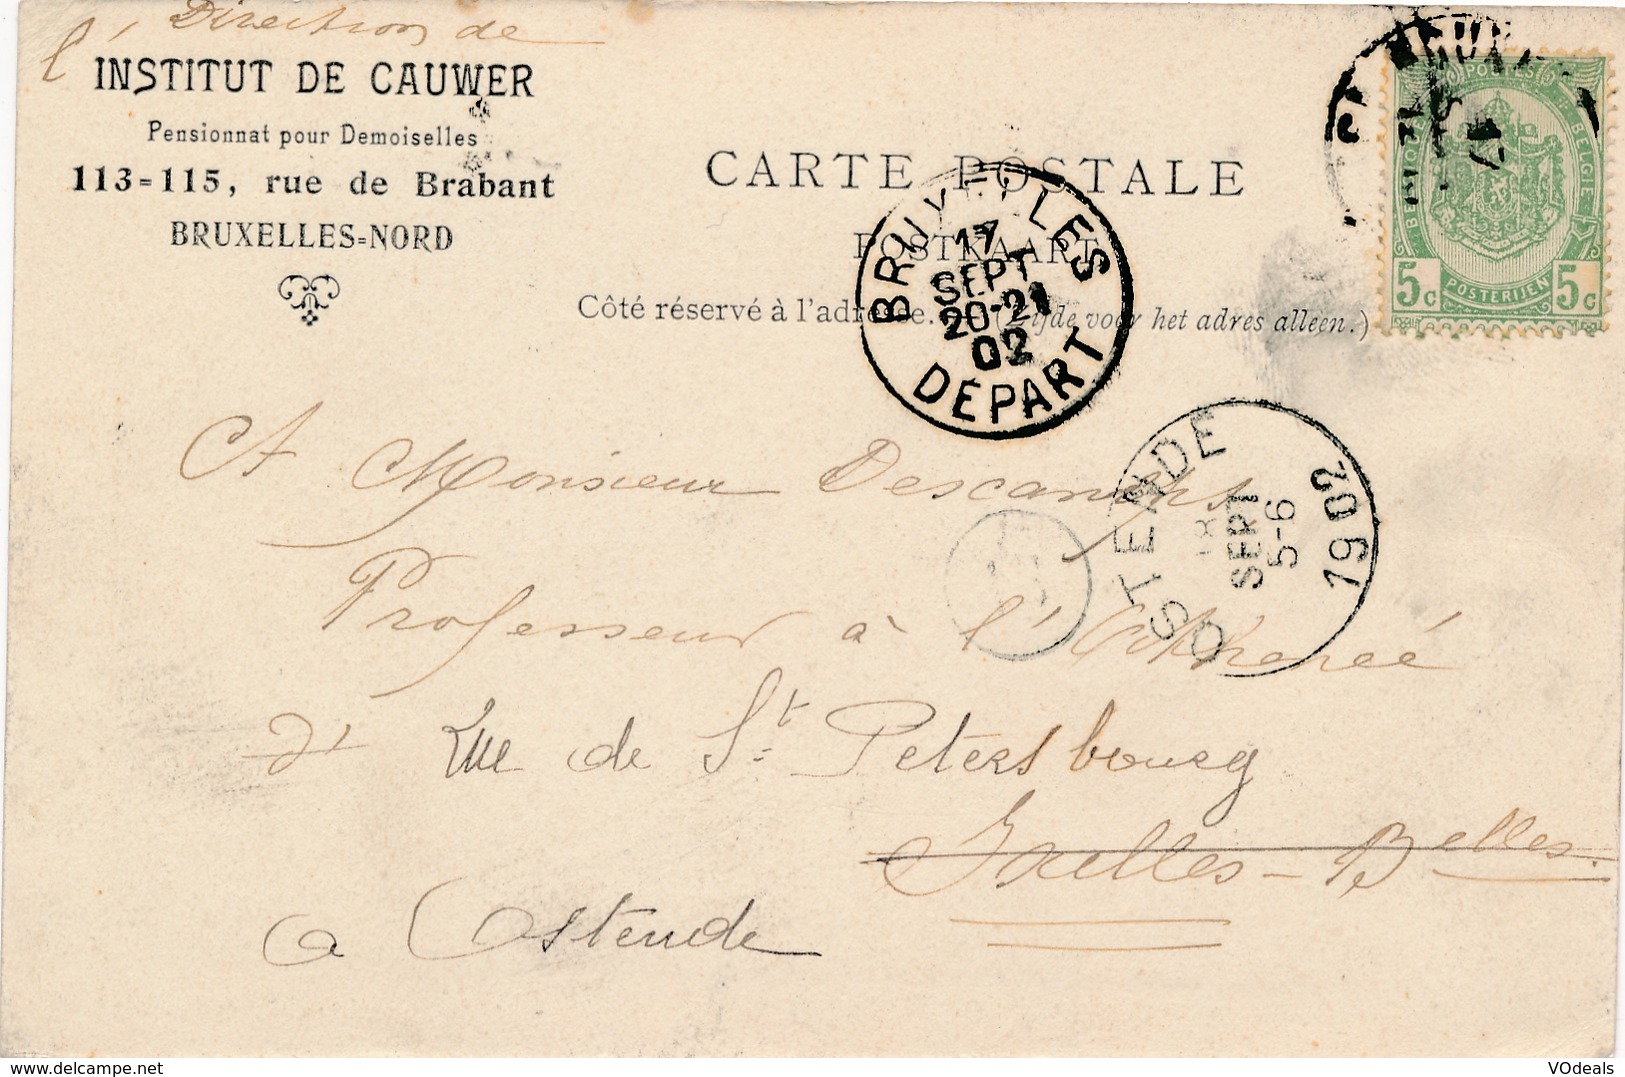 Direction de
l'INSTITUT DE CAUWER
Pensionnat pour Demoiselles
113=115, rue de Brabant
BRUXELLES=NORD
CARTE POSTALE
POSTKAART
Côté réservé à l'adresse. — (Zijde voor het adres alleen.)
POSTES
BELGIQUE
BELGIË
5c POSTERIJEN 5c
17
BRUXELLES
17
SEPT
20-21
02
DÉPART
OSTENDE
18
SEPT
5-6
1902
A Monsieur Descamps
Professeur à l'Athénée
Rue de St Petersbourg
Ixelles-Bxelles.
a Ostende
www.delcampe.net
VOdeals